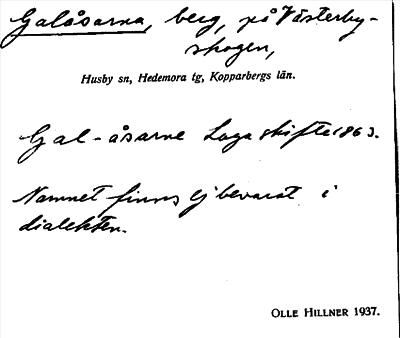 Galåsarna, berg, på Västerby-
skogen,
Husby sn, Hedemora tg, Kopparbergs län.
Gal-åsarne Laga skifte 1863.
Namnet finns ej bevarat i
dialekten.
OLLE HILLNER 1937.